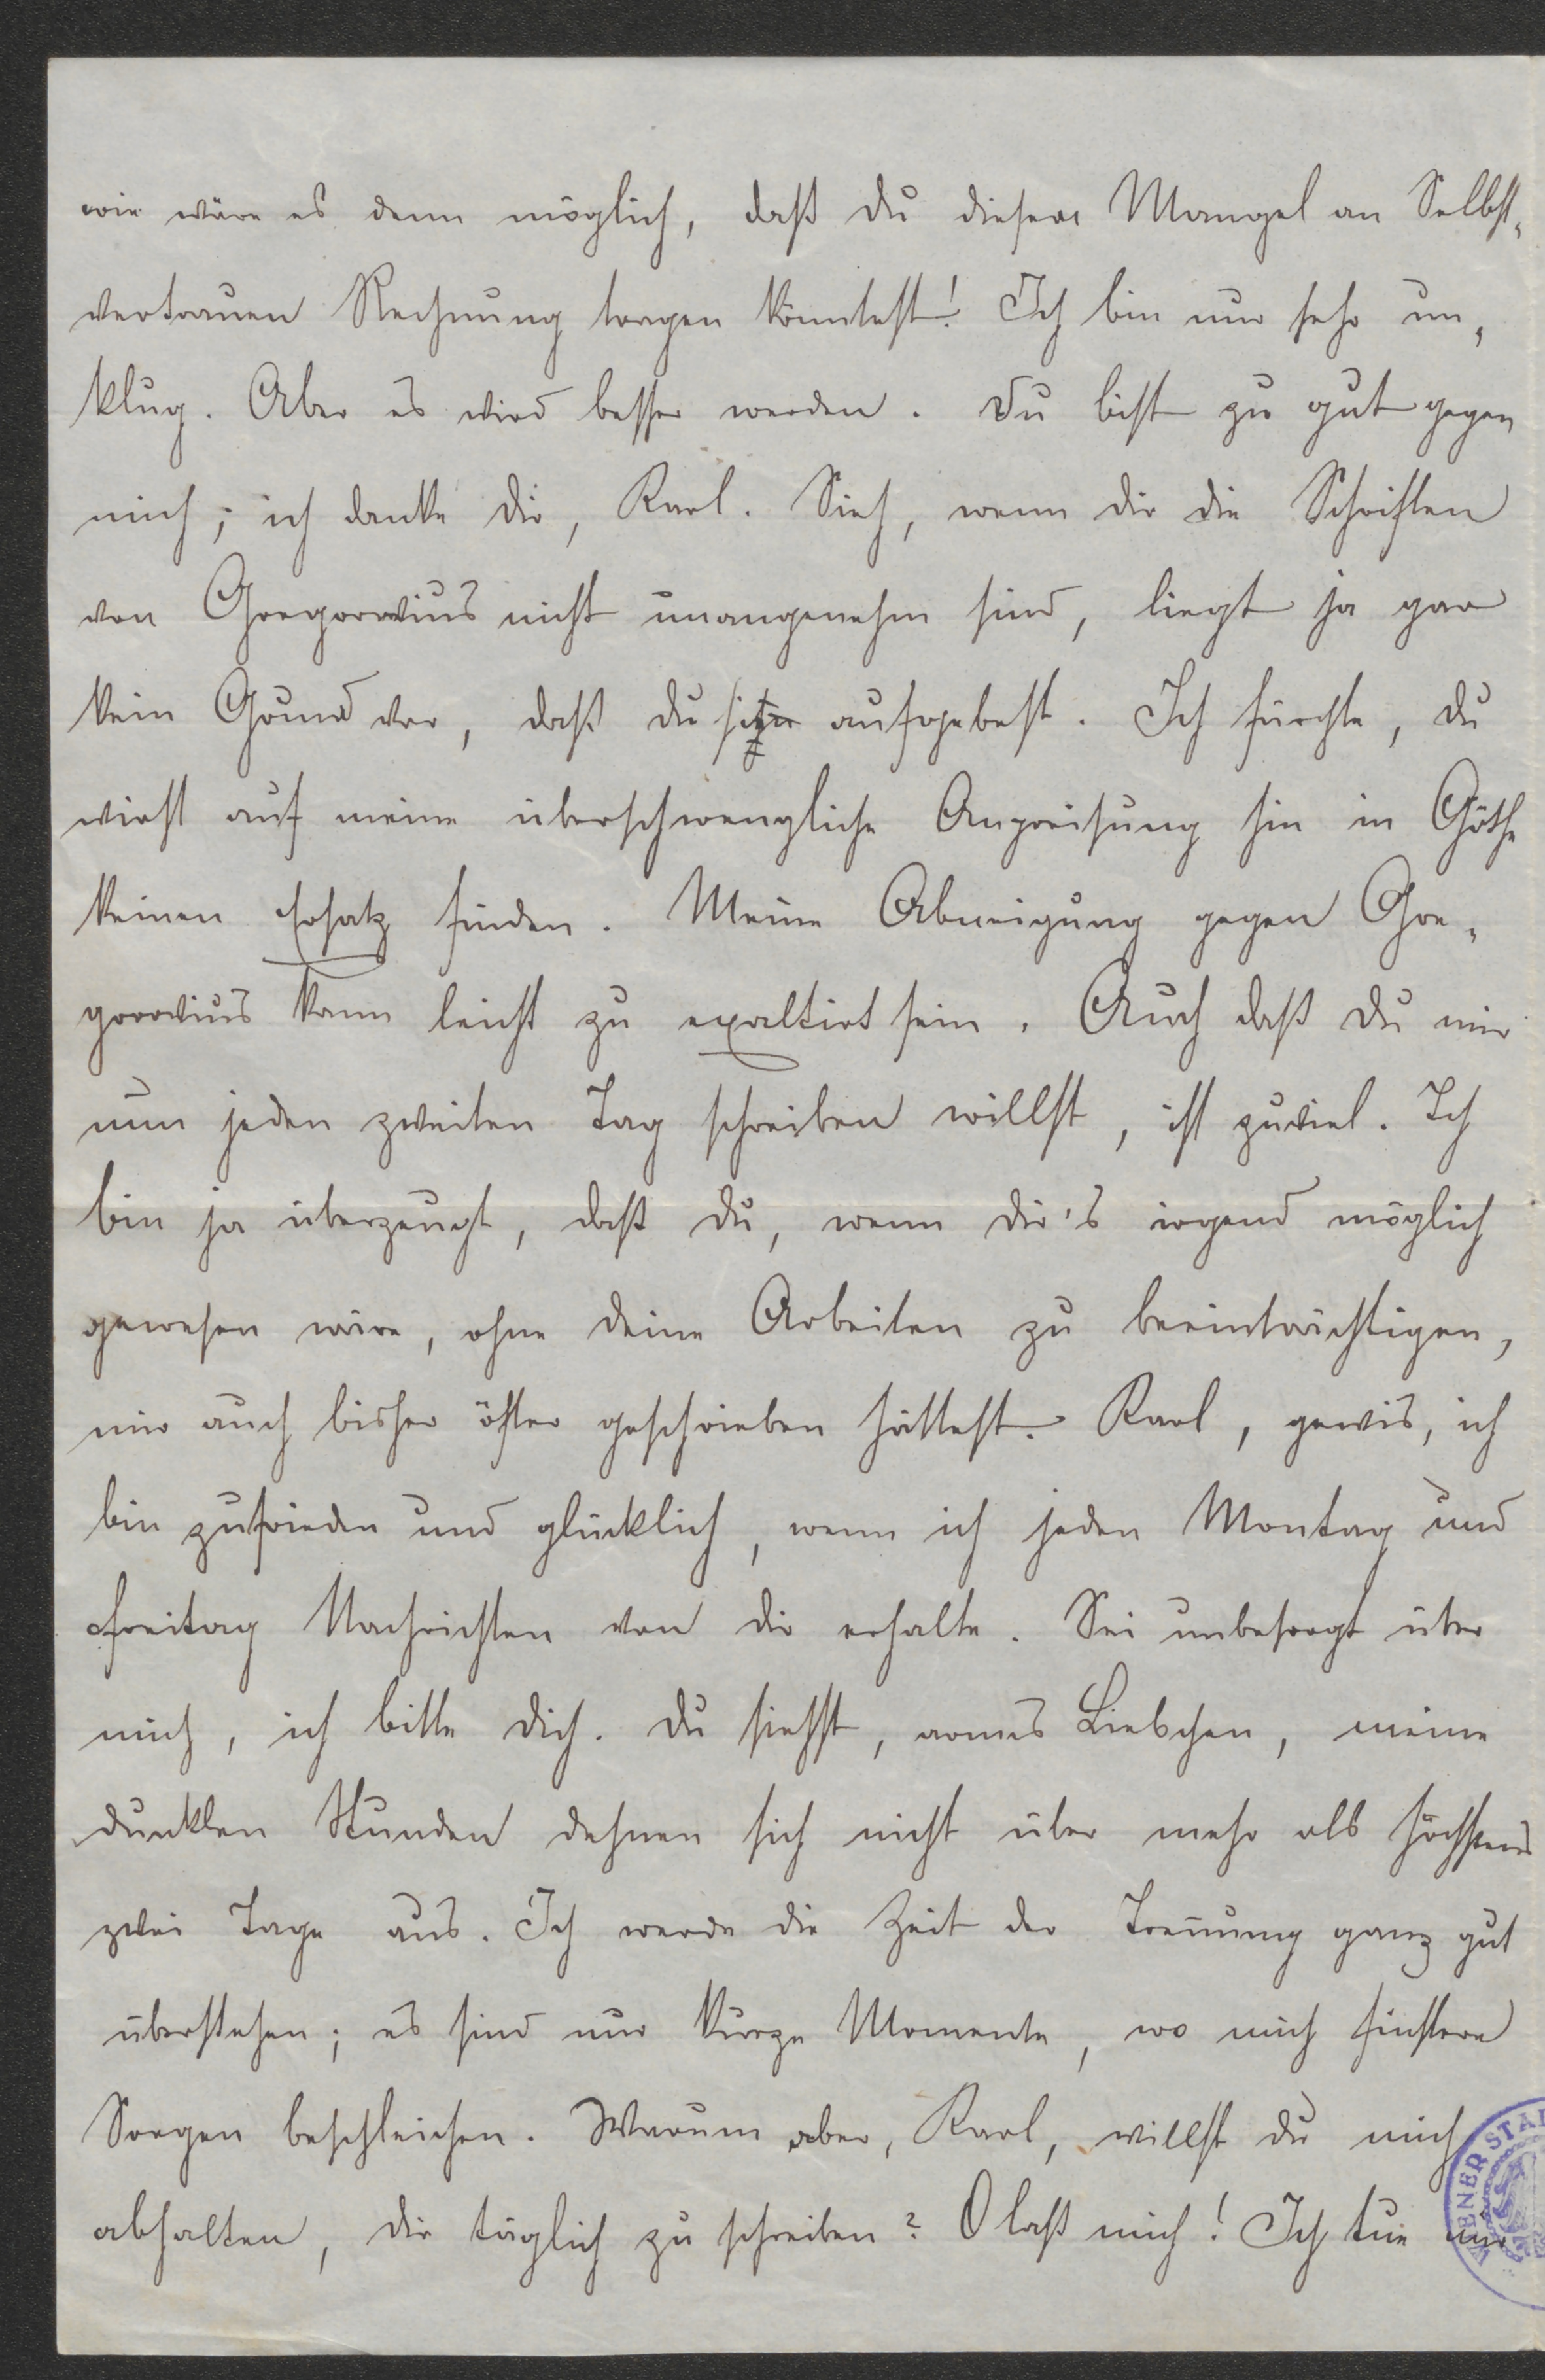 wie wäre es denn möglich, daß du diesem Mangel an Selbst„
vertrauen Rechnung tragen könntest! Ich bin nur sehr un„
klug. Aber es wird besser werden. Du bist zu gut gegen
mich; ich danke dir, Karl. Sieh, wenn dir die Schriften
von Gregorovius nicht unangenehm sind, liegt ja gar
kein Grund vor, daß du sie aufgebest. Ich fürchte, du
wirst auf meine überschwengliche Anpreisung hin in Göthe
keinen Ersatz finden. Meine Abneigung gegen Gre„
gorovius kann leicht zu exaltirt sein. Auch daß du mir
nun jeden zweiten Tag schreiben willst, ist zuviel. Ich
bin ja überzeugt, daß du, wenn dir's irgend möglich
gewesen wäre, ohne deine Arbeiten zu beeinträchtigen,
mir auch bisher öfter geschrieben hättest. Karl, gewis, ich
bin zufrieden und glücklich, wenn ich jeden Montag und
Freitag Nachrichten von dir erhalte. Sei unbesorgt über
mich, ich bitte dich. Du siehst, armes Liebchen, meine
dunklen Stunden dehnen sich nicht über mehr als höchstens
zwei Tage aus. Ich werde die Zeit der Tren̄ung ganz gut
überstehen; es sind nur kurze Momente, wo mich finstere
Sorgen beschleichen. Warum aber, Karl, willst du mich
abhalten, dir täglich zu schreiben? O laß mich! Ich tue nur
WIENER STA